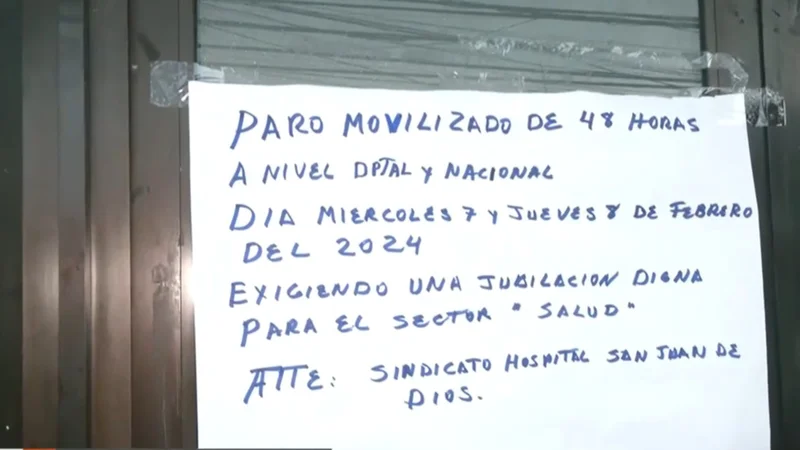 PARO MOVILIZADO DE 48 HORAS
A NIVEL DPTAL Y NACIONAL
DIA MIERCOLES 7 Y JUEVES 8 DE FEBRERO
DEL 2024
EXIGIENDO UNA JUBILACION DIGNA
PARA EL SECTOR "SALUD"
ATTE: SINDICATO HOSPITAL SAN JUAN DE
DIOS.